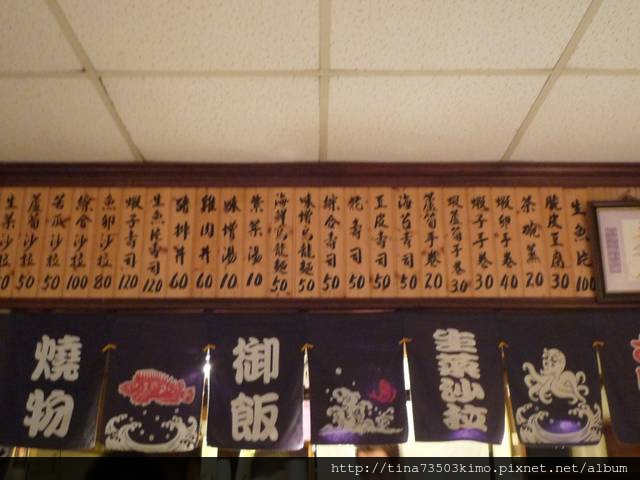 生魚片 100
脆皮豆腐 30
茶碗蒸 20
蝦卵手卷 40
蝦手卷 30
蝦蘆筍手卷 30
蘆筍手卷 20
海苔壽司 50
豆皮壽司 50
花壽司 50
綜合壽司 50
味增烏龍麵 50
海鮮烏龍麵 50
紫菜湯 10
味增湯 10
雞肉丼 60
豬排丼 60
生魚片壽司 120
蝦子壽司 120
魚卵沙拉 80
綜合沙拉 100
苦瓜沙拉 50
蘆筍沙拉 50
生菜沙拉
燒物
御飯
生菜沙拉
http://tina73503kimo.pixnet.net/album